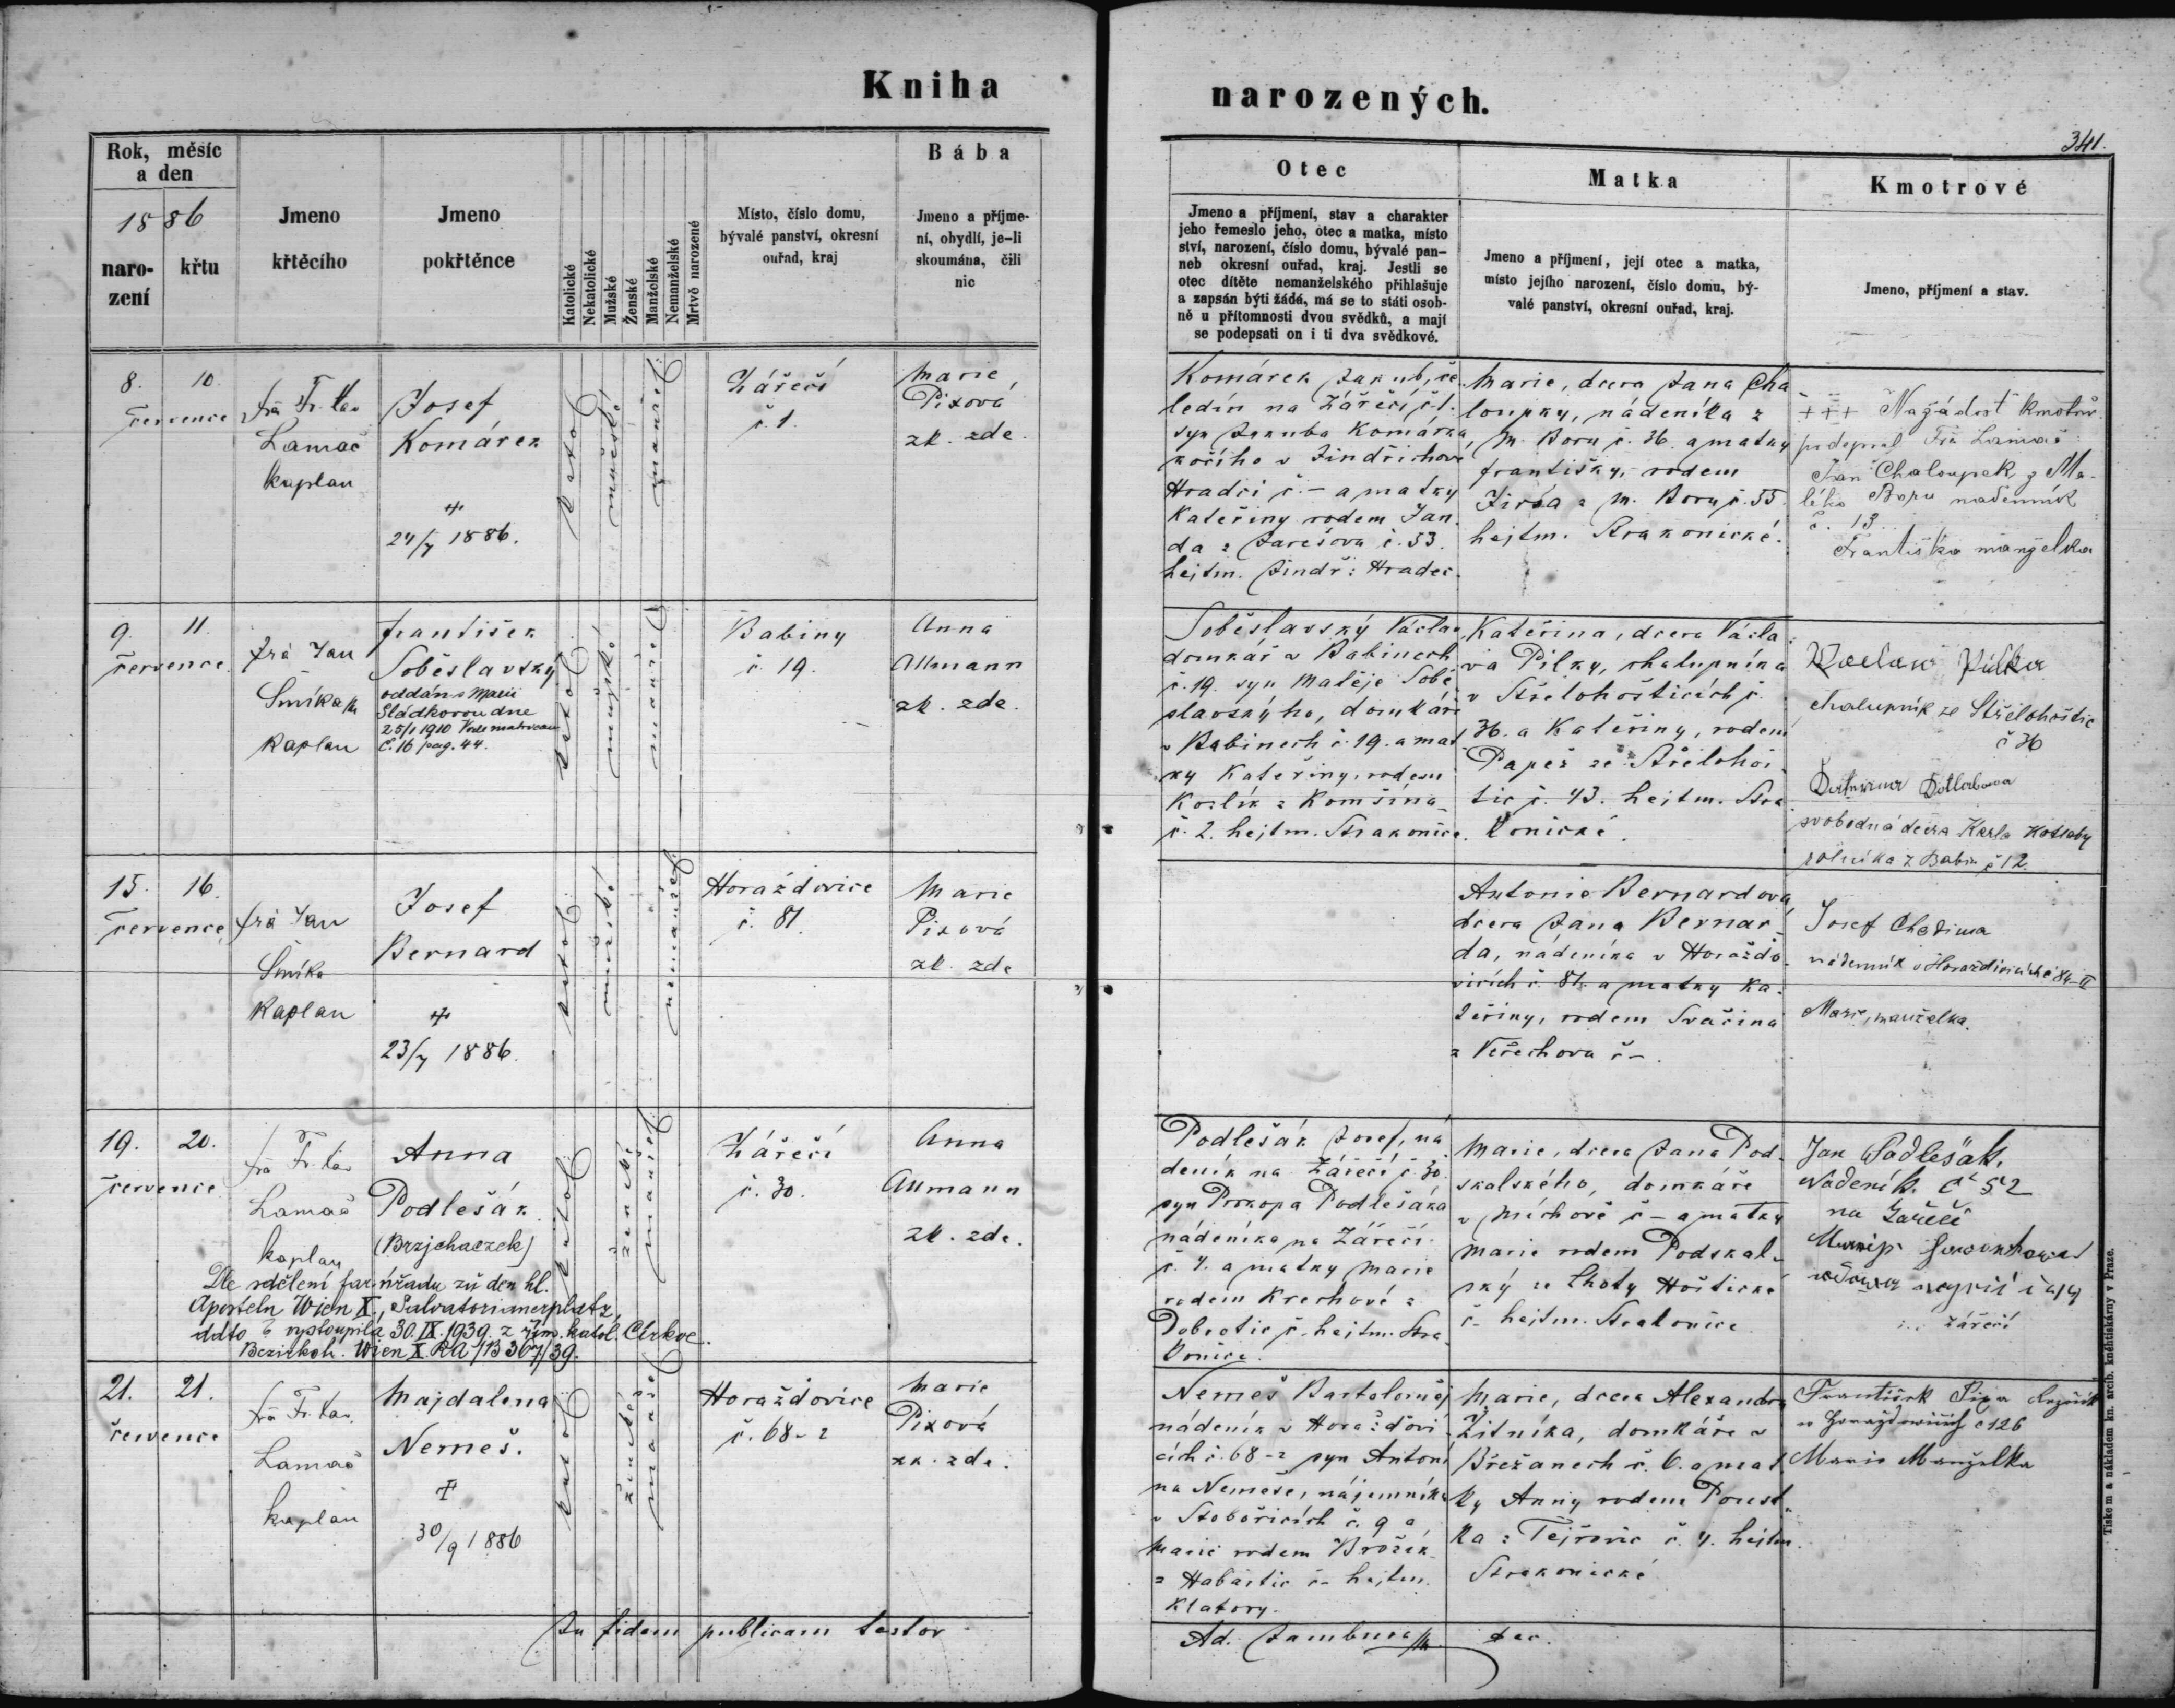 Kniha
narozených.
341.
Rok, měsíc
a den
1886
naro-
zení
křtu
Jmeno
křtěcího
Jmeno
pokřtěnce
Katolické
Nekatolické
Mužské
Ženské
Manželské
Nemanželské
Mrtvě narozené
Místo, číslo domu,
bývalé panství, okresní
ouřad, kraj
Bába
Jmeno a příjme-
ní, obydlí, je-li
skoumána, čili
nic
Otec
Jmeno a příjmení, stav a charakter
jeho řemeslo jeho, otec a matka, místo
ství, narození, číslo domu, bývalé pan-
neb okresní ouřad, kraj. Jestli se
otec dítěte nemanželského přihlašuje
a zapsán býti žádá, má se to státi osob-
ně u přítomnosti dvou svědků, a mají
se podepsati on i ti dva svědkové.
Matka
Jmeno a příjmení, její otec a matka,
místo jejího narození, číslo domu, bý-
valé panství, okresní ouřad, kraj.
Kmotrové
Jmeno, příjmení a stav.
8. 10.
července
frá Fr. Xav
Lamač
kaplan
Josef
Komárek
24/7 1886.
katol
mužské
manžel
Zářečí
č. 1.
Marie
Pixová
zk. zde.
Komárek Jakub, če-
ledín na Zářečí č. 1.
syn Jakuba Komárka,
kočího v Jindřichově
Hradci č. – a matky
Kateřiny rodem Jan-
da z Jarešova č. 53.
hejtm. Jindř: Hradec.
Marie, dcera Jana Cha-
loupky, nádeníka z
M. Boru č. 36. a matky
Františky, rodem
Jirsa z M. Boru č. 55.
hejtm. Strakonické.
+++ Na žádost kmotrů
podepsal Frá Lamač
Jan Chaloupek z Ma-
lého Boru nadenník
č. 13.
Františka manželka
9. 11.
července.
frá Jan
Smíka
kaplan
František
Soběslavský
oddán s Marií
Sládkovou dne
25/1 1910
č. 16 pag. 44.
katol
mužské
manžel
Babiny
č. 19.
Anna
Allmann
zk. zde.
Soběslavský Václav
domkář v Babinech
č. 19. syn Matěje Sobě-
slavského, domkáře
v Babinech č. 19. a mat-
ky Kateřiny, rodem
Kozlík z Komšína
č. 2. hejtm. Strakonice.
Kateřina, dcera Václa-
va Pilky, chalupníka
v Střelohošticích č.
36. a Kateřiny, rodem
Papež ze Střelohoš-
tic č. 43. hejtm. Stra-
konické.
Waclaw Pilka
chalupník ze Střelohoštic
č 36
svobodná dcera Karla Kotlaby
rolníka z Babin č 12.
15. 16.
července,
frá Jan
Smíka
kaplan
Josef
Bernard
23/7 1886.
katol
mužské
nemanžel
Horažďovice
č. 81.
Marie
Pixová
zk. zde
Antonie Bernardova,
dcera Jana Bernar-
da, nádeníka v Horaždo-
vicích č. 81. a matky Ka-
teřiny, rodem Svačina
z Veřechova č –.
Josef Chodima
nádenník v Horaždovicích č 84–II
Marie, manželka.
19. 20.
července
frá Fr. Xav
Lamač
kaplan
Anna
Podlešák
(Brzjchaczek)
Dle sdělení far. úřadu zů den hl.
Aposteln Wien X., Salvatorianerplatz,
ddto vystoupila 30. IX. 1939. z řím. katol. Církve.
Bezirksh. Wien X. RA/B 367/39.
katol
ženské
manžel
Zářečí
č. 30.
Anna
Allmann
zk. zde.
Podlešák Josef, ná-
deník na Zářečí č 30.
syn Prokopa Podlešáka
nádeníka na Zářečí
č. 4. a matky Marie
rodem Krechové z
Dobrotic č– hejtm. Stra-
konice.
Marie, dcera Jana Pod-
skalského, domkáře
v Míchově č – a matky
Marie rodem Podskal-
ský ze Lhoty Hoštické
č– hejtm. Strakonice
Jan Podlešák,
Nádeník. č 52
na Zářečí
zářečí
21. 21.
července
frá Fr. Xav.
Lamač
kaplan
Majdalena
Nemeš.
30/9 1886
katol
ženské
manžel
Horažďovice
č. 68–2
Marie
Pixová
zk. zde.
Nemeš Bartoloměj
nádeník v Horaždovi-
cích č. 68–2 syn Antoní-
na Nemeše, nájemníka
v Stobořicích č. 9 a
Marie rodem Brožek
z Habartic č– hejtm.
Klatovy.
Marie, dcera Alexandra
Žitníka, domkáře v
Břežanech č. 6. a mat-
ky Anny rodem Poust-
ka z Tejřovic č. 4. hejtm.
Strakonické
František Pixa
v Horažďovicích č 126
Marie Manželka
In fidem publicam testor
Ad. Jambura
Tiskem a nákladem kn. arcib. knihtiskárny v Praze.